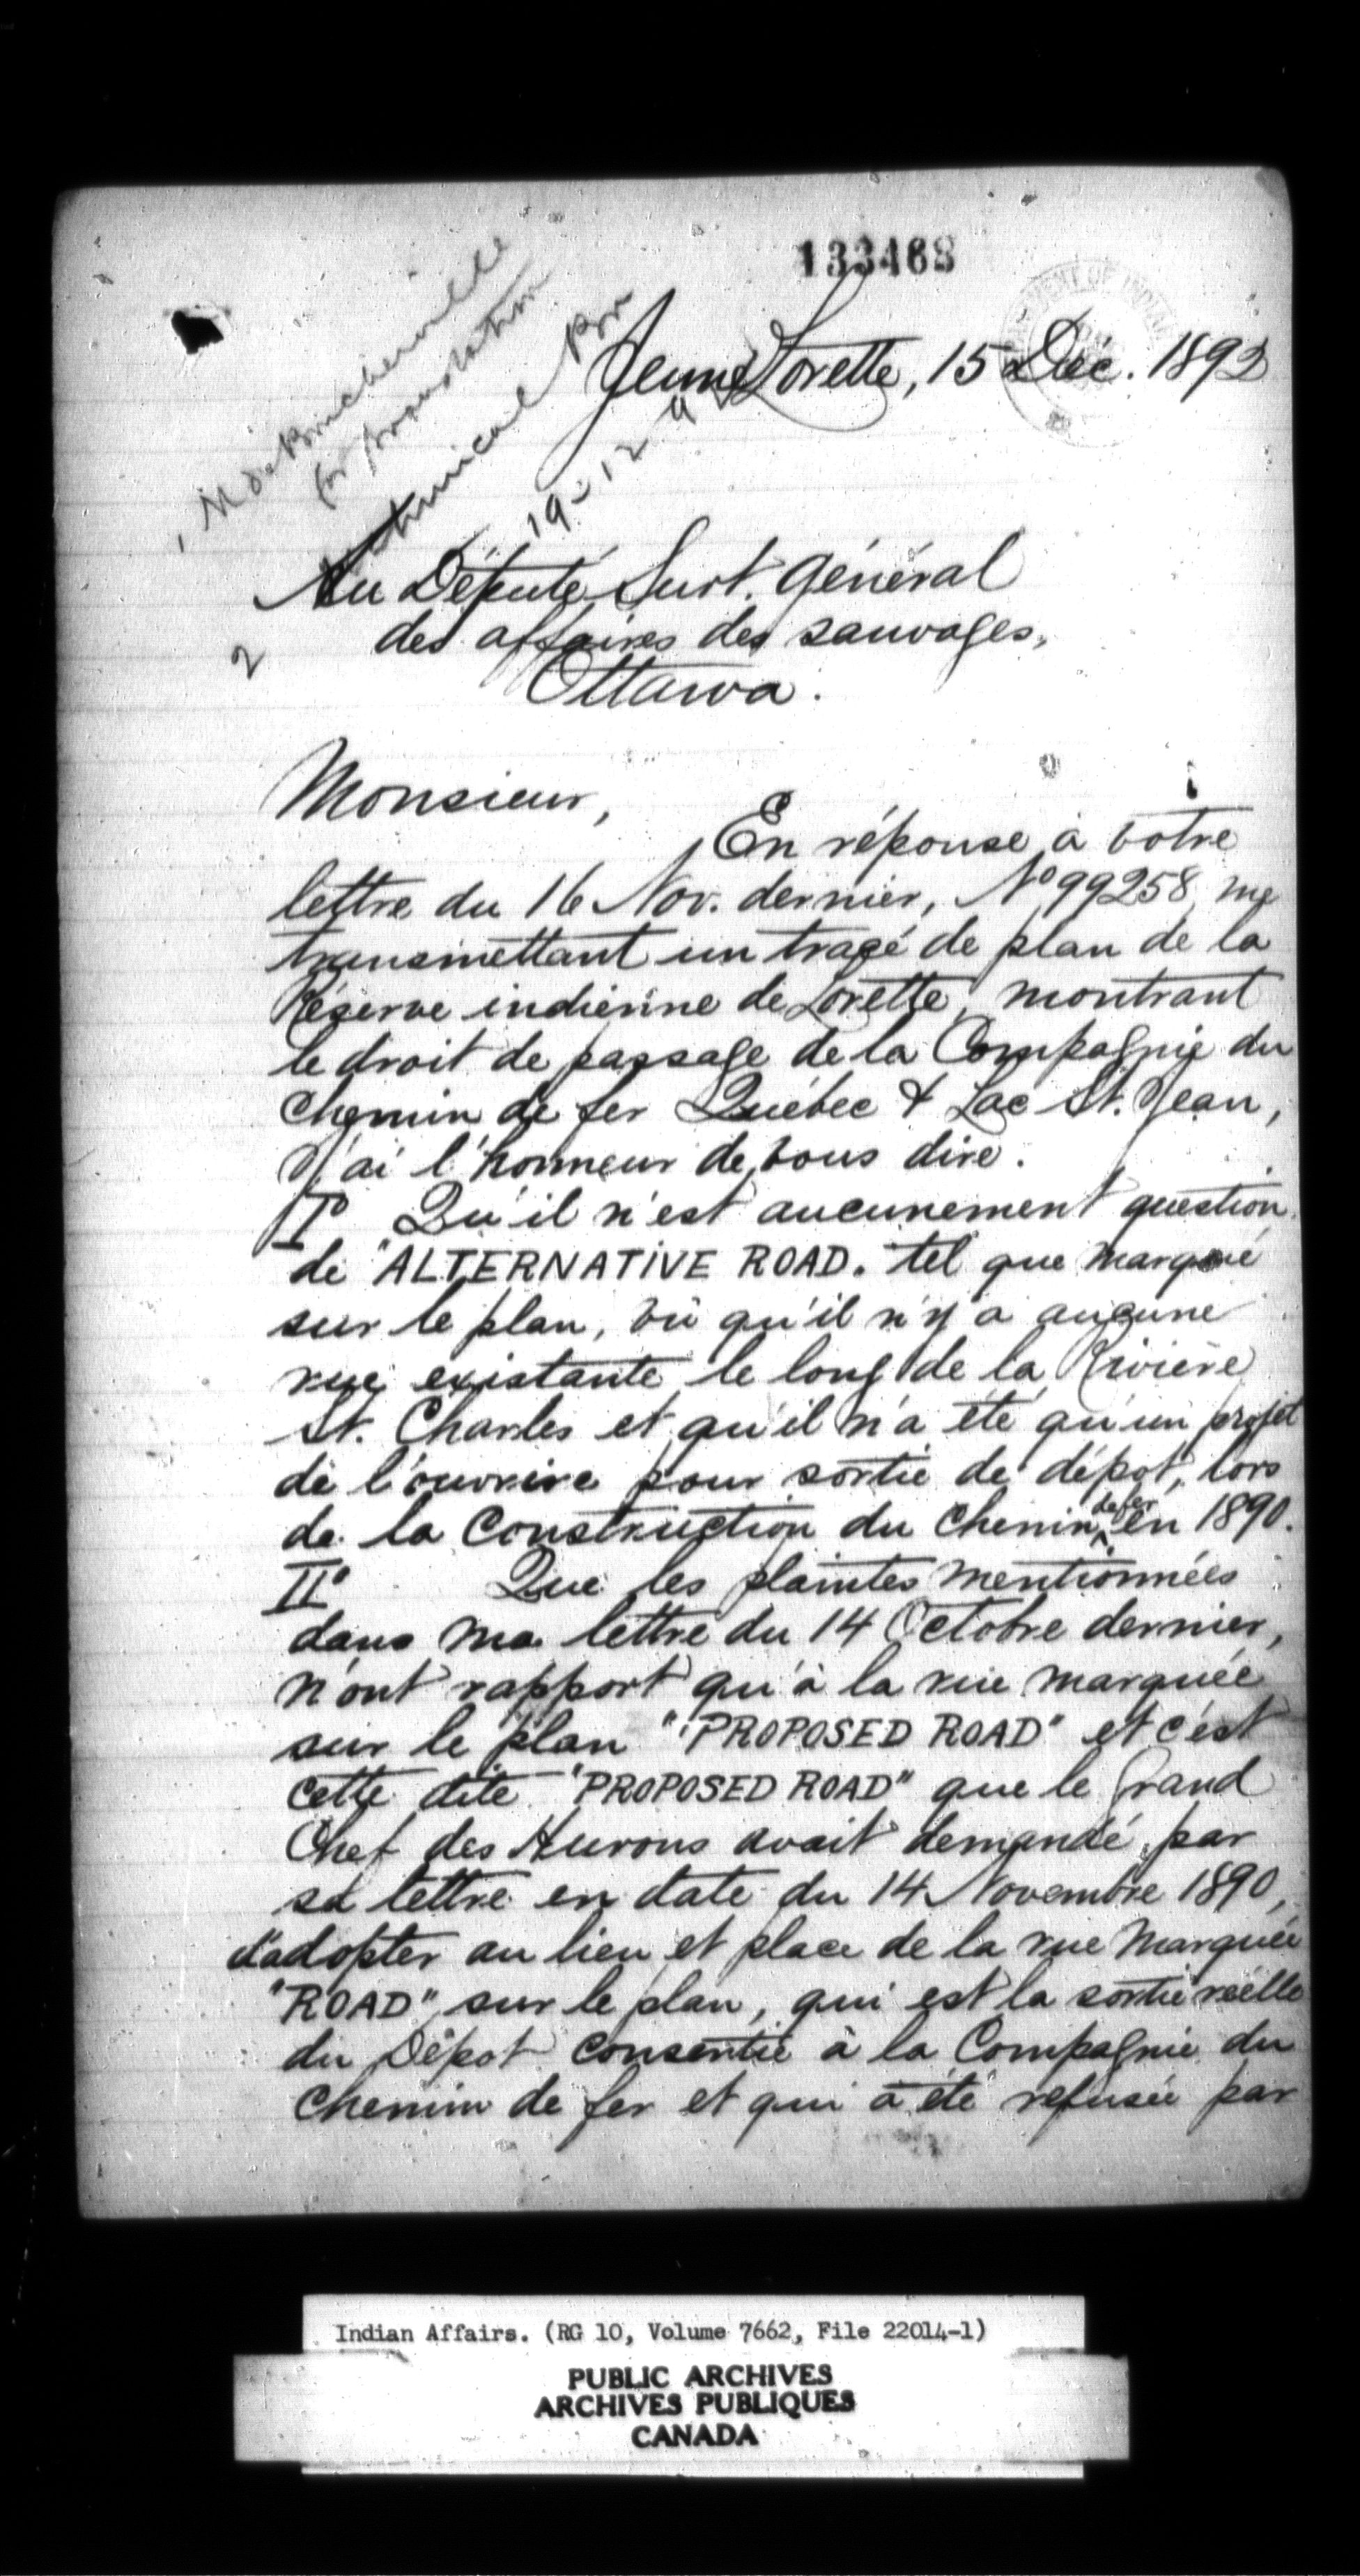 133468
Jeune Lorette, 15 Déc. 1892
for translation
Technical Bra
19-12-92
2
Au Député Surt. Général
des affaires des sauvages,
Ottawa.
Monsieur,
En réponse à votre
lettre du 16 Nov. dernier, No 99258 me
transmettant un tracé de plan de la
Réserve indienne de Lorette, montrant
le droit de passage de la Compagnie du
Chemin de fer Québec & Lac St. Jean,
J'ai l'honneur de vous dire.
I° Qu'il n'est aucunement question
de "ALTERNATIVE ROAD. tel que marqué
sur le plan, vû qu'il n'y a aucune
rue existante le long de la Rivière
St. Charles et qu'il n'a été qu'un projet
de l'ouvrire pour sortie de dépot, lors
de la Construction du Chemin de fer en 1890.
II° Que les plaintes mentionnées
dans ma lettre du 14 Octobre dernier,
n'ont rapport qu'à la rue marquée
sur le plan "PROPOSED ROAD" et c'est
cette dite "PROPOSED ROAD" que le Grand
Chef des Hurons avait demandé, par
sa lettre en date du 14 Novembre 1890,
d'adopter au lieu et place de la rue marquée
"ROAD" sur le plan, qui est la sortie réelle
du Dépot consentie à la Compagnie du
Chemin de fer et qui a été refusée par
Indian Affairs. (RG 10, Volume 7662, File 22014-1)
PUBLIC ARCHIVES
ARCHIVES PUBLIQUES
CANADA